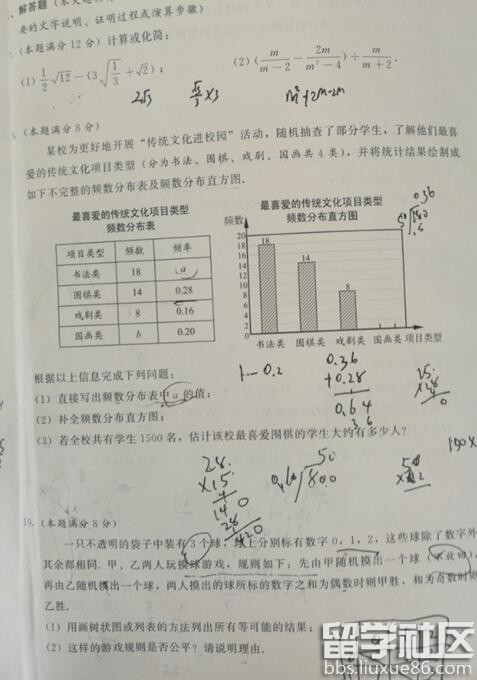 解答题
要的文字说明、证明过程或演算步骤)
(本题满分 12 分) 计算或化简:
(1) 1/2 √12 − (3√(1/3) + √2); (2) (m/(m−2) − 2m/(m²−4)) ÷ m/(m+2).
2√3 ×3 m²+2m-2m
(本题满分 8 分)
某校为更好地开展“传统文化进校园”活动,随机抽查了部分学生,了解他们最喜
爱的传统文化项目类型(分为书法、围棋、戏剧、国画共 4 类),并将统计结果绘制成
如下不完整的频数分布表及频数分布直方图.
最喜爱的传统文化项目类型
频数分布表
项目类型 频数 频率
书法类 18 a
围棋类 14 0.28
戏剧类 8 0.16
国画类 b 0.20
最喜爱的传统文化项目类型
频数分布直方图
频数
20
18
16
14
12
10
8
6
4
2
0
18
14
8
书法类 围棋类 戏剧类 国画类 项目类型
0.36
50 180
根据以上信息完成下列问题:
(1) 直接写出频数分布表中 a 的值;
(2) 补全频数分布直方图;
(3) 若全校共有学生 1500 名,估计该校最喜爱围棋的学生大约有多少人?
1-0.2
0.36
+0.28
0.64
28
×15
140
28
420
50
800
19. (本题满分 8 分)
一只不透明的袋子中装有 3 个球,球上分别标有数字 0,1,2,这些球除了数字外
其余都相同,甲、乙两人玩摸球游戏,规则如下:先由甲随机摸出一个球(不放回),
再由乙随机摸出一个球,两人摸出的球所标的数字之和为偶数时则甲胜,和为奇数时则
乙胜.
(1) 用画树状图或列表的方法列出所有等可能的结果;
(2) 这样的游戏规则是否公平?请说明理由.
留学社区
bbs.liuxue86.com